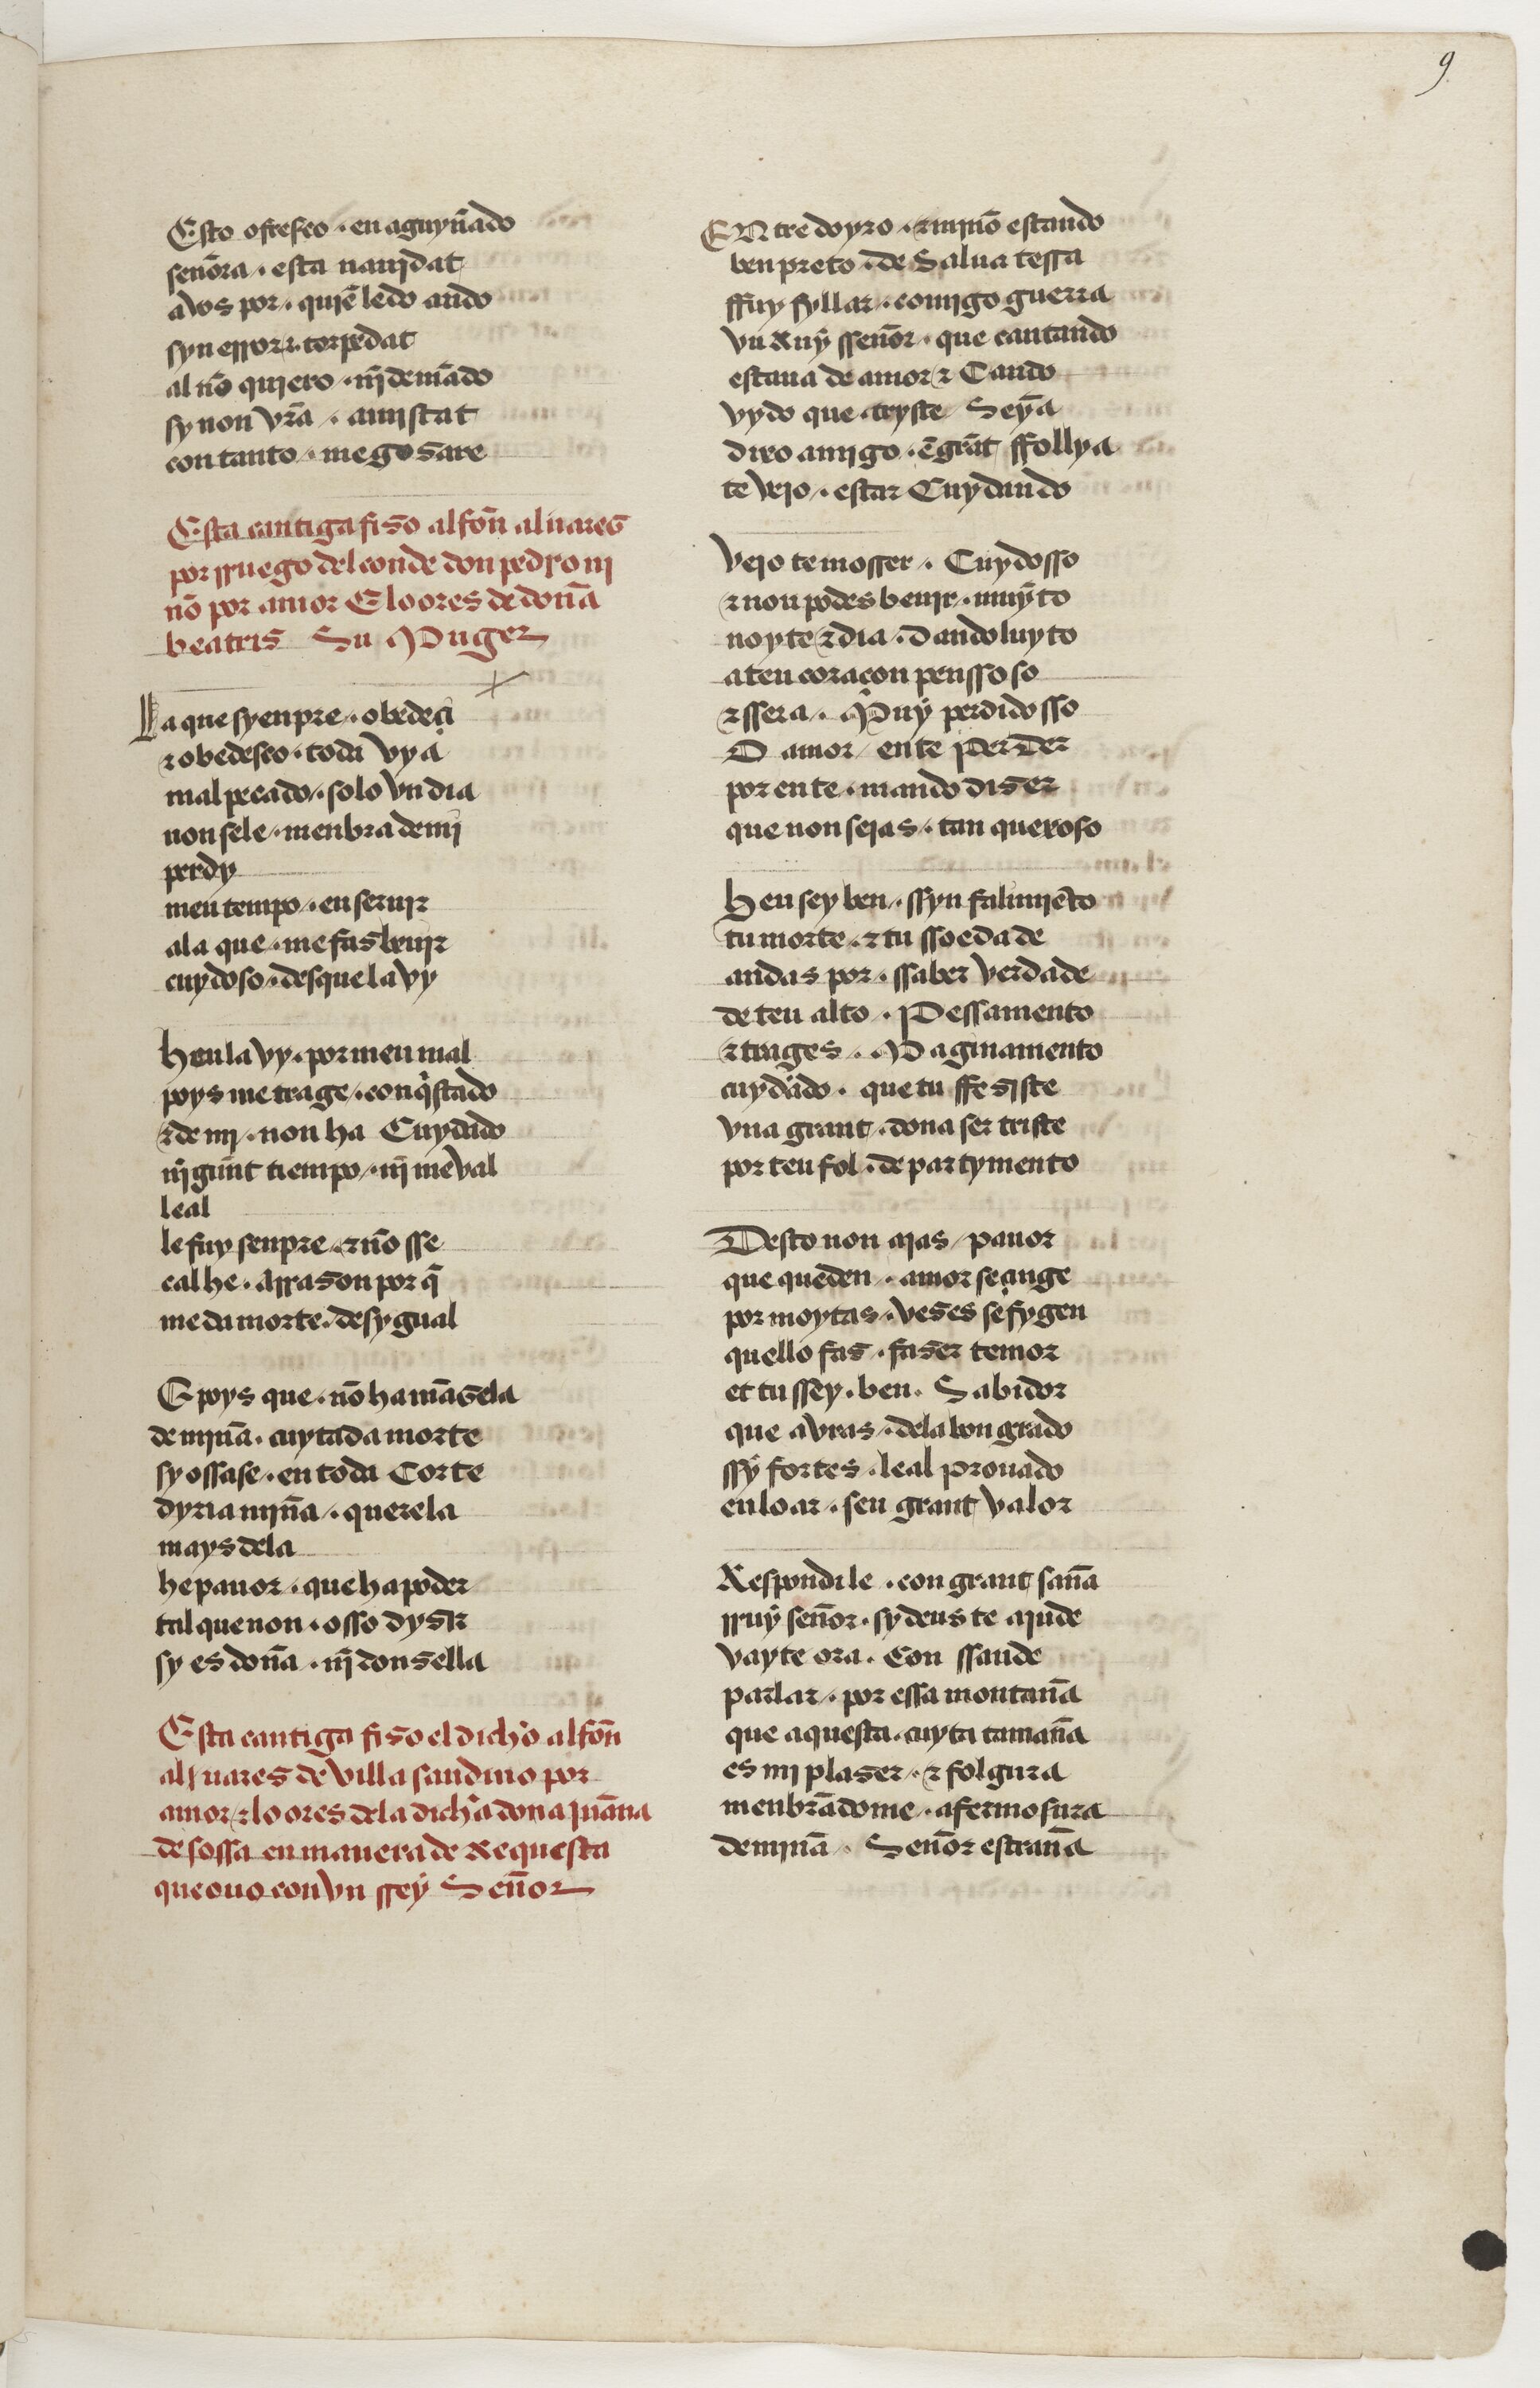 9
Esto ofresco · en aguyñado
señora · esta nauidat
a vos por · quiẽ ledo ando
syn error & torpedat
al nõ quiero · nĩ demãdo
sy non vr̃a · amistat
con tanto · me gosare
Esta cantiga fiso alfoñ aluares
por rruego del conde don pedro ni
ño por amor E loores de doña
beatris Su Muger
La que syenpre · obedeçi
& obedesco · toda vya
mal pecado · solo vn dia
non se le · menbra de mi
perdy
meu tempo · en seruir
a la que · me fas beuir
cuydoso · desque la vy
Heu la vy · por meu mal
poys me trage · conq̃stado
& de mi · non ha Cuydado
nĩgunt tiempo · nĩ me val
leal
le fuy senpre · & nõ sse
cal he · a rrason por q̃
me da morte · desygual
E poys que · nõ ha mãsela
de miña · cuytada morte
sy ossase · en toda Corte
dyria miña · querela
mays dela
he pauor · que ha poder
tal que non · osso dysir
sy es doña · nĩ donsella
Esta cantiga fiso el dicho alfoñ
aluares de villa sandino por
amor & loores de la dicha dona juãna
de sossa en manera de Requesta
que ouo con vn rrey Señor
ENtre doyro · & miño estando
ben preto · de Salua terra
ffuy fyllar · comigo guerra
vn Ruy sseñor · que cantando
estaua de amor & Cando
vydo que · tryste Seya
dixo amigo · ẽ grãt ffollya
te vejo · estar Cuydando
Vejo te moller · Cuydosso
& non podes beuir · muyto
noyte & dia · dando luyto
a teu coraçon penssoso
& ssera · Muy perdidosso
O amor en te perder
por ente · mando diser
que non sejas · tan quexoso
Heu sey ben · ssyn falimiẽto
tu morte · & tu ssoedade
andas por · ssaber verdade
de teu alto · Pessamento
& trages · Maginamento
cuydãdo · que tu ffesiste
vna grant · dona ser triste
por teu fol · departymento
Desto non ajas pauor
que queden · amor se çinge
por moytas · veses se fygen
quello fas · faser temor
et tu ssey · ben · Sabidor
que avras · dela bon grado
ssy fortes · leal prouado
en loar · seu grant valor
Respondile · con grant saña
rruy señor · sy deus te ajude
vayte ora · Con ssaude
parlar · por essa montaña
que aquesta · cuyta tamaña
es mi plaser · & folgura
menbrãdome · a fermosura
de miña · Señor estraña